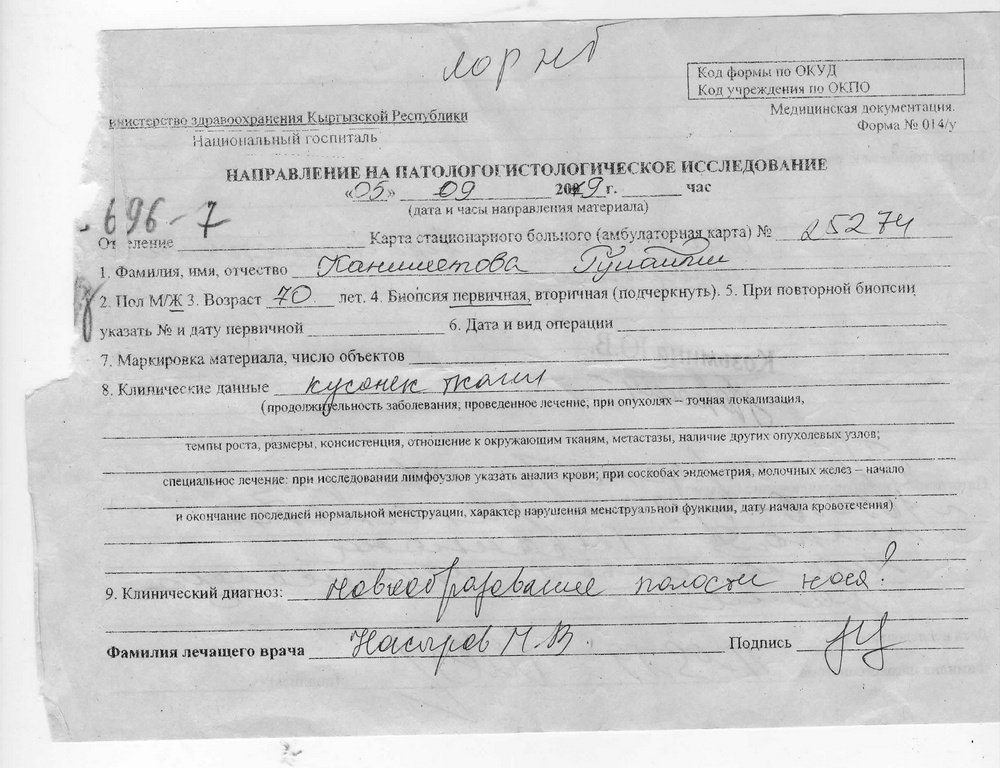 лор нг
Код формы по ОКУД
Код учреждения по ОКПО
инистерство здравоохранения Кыргызской Республики
Медицинская документация.
Национальный госпиталь
Форма № 014/у
НАПРАВЛЕНИЕ НА ПАТОЛОГОГИСТОЛОГИЧЕСКОЕ ИССЛЕДОВАНИЕ
«05» 09 2019 г. час
(дата и часы направления материала)
696-7
От еление Карта стационарного больного (амбулаторная карта) № 25274
1. Фамилия, имя, отчество
2. Пол М/Ж 3. Возраст 70 лет. 4. Биопсия первичная, вторичная (подчеркнуть). 5. При повторной биопсии
указать № и дату первичной 6. Дата и вид операции
7. Маркировка материала, число объектов
8. Клинические данные кусочек ткани
(продолжительность заболевания; проведенное лечение; при опухолях – точная локализация,
темпы роста, размеры, консистенция, отношение к окружающим тканям, метастазы, наличие других опухолевых узлов;
специальное лечение: при исследовании лимфоузлов указать анализ крови; при соскобах эндометрия, молочных желез – начало
и окончание последней нормальной менструации, характер нарушения менструальной функции, дату начала кровотечения)
9. Клинический диагноз: Новообразование полости носа?
Фамилия лечащего врача Насыров М.В. Подпись